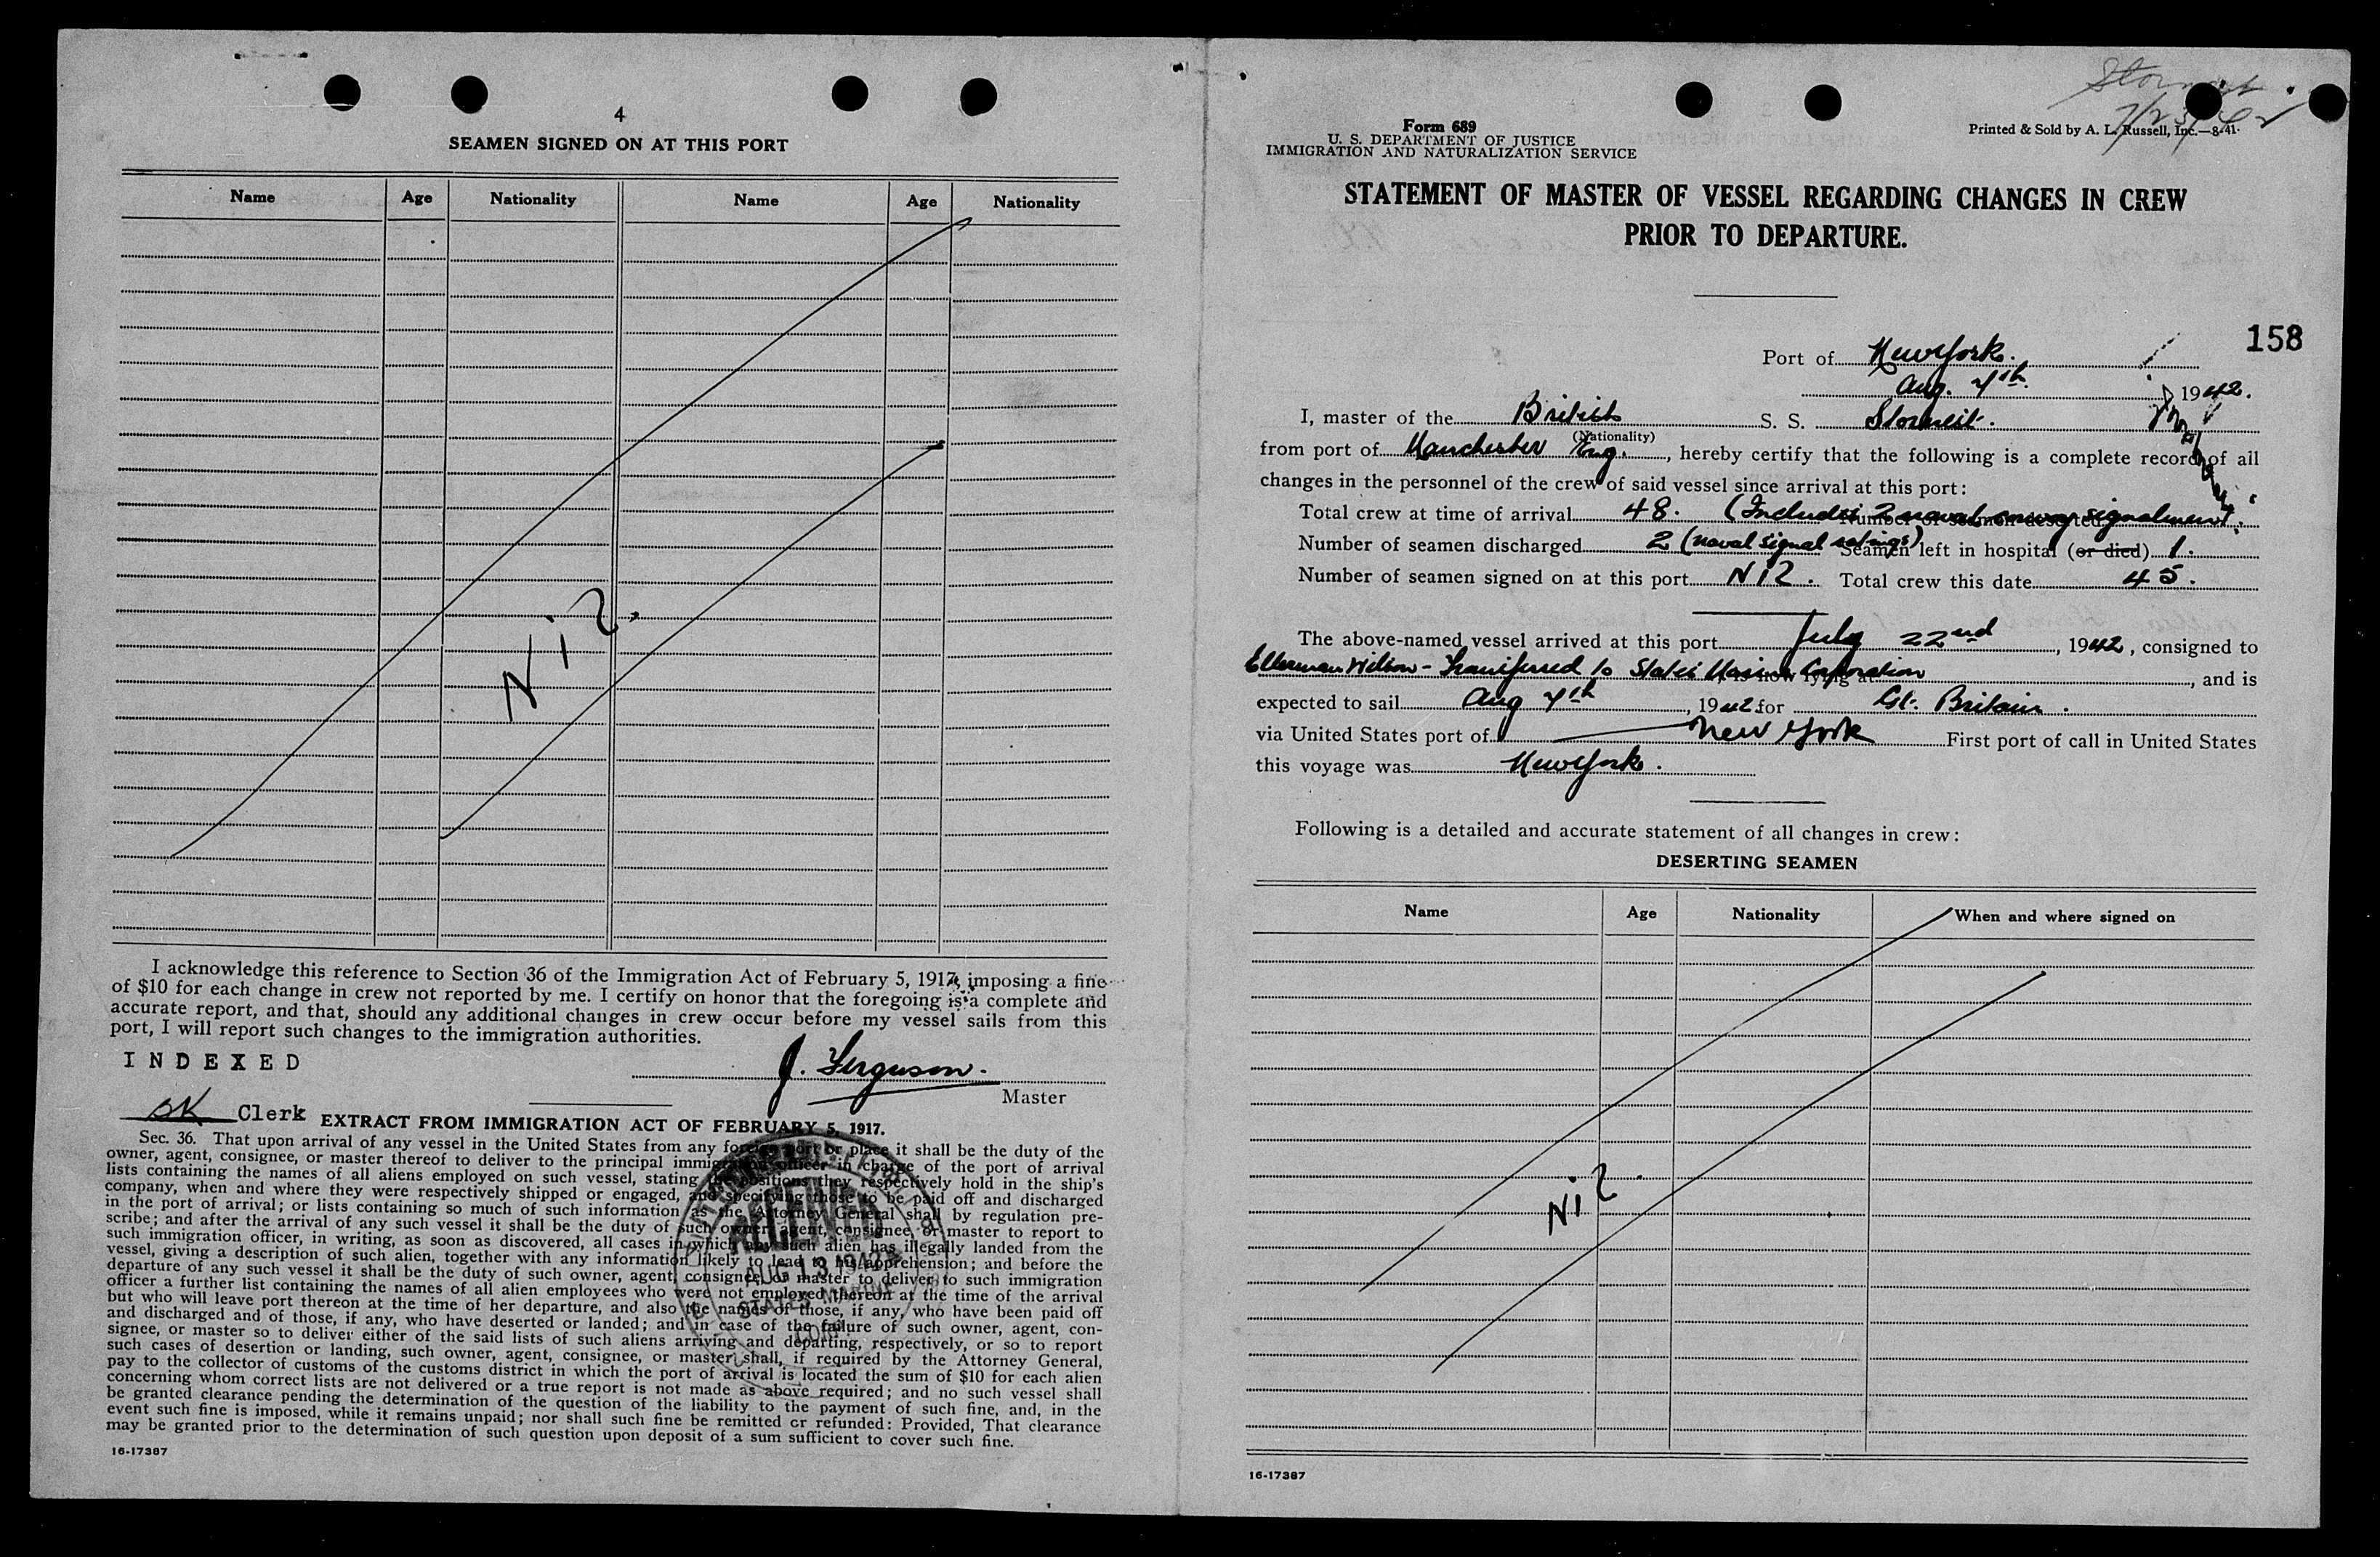 4
SEAMEN SIGNED ON AT THIS PORT
Name Age Nationality Name Age Nationality
Nil.
I acknowledge this reference to Section 36 of the Immigration Act of February 5, 1917, imposing a fine
of $10 for each change in crew not reported by me. I certify on honor that the foregoing is a complete and
accurate report, and that, should any additional changes in crew occur before my vessel sails from this
port, I will report such changes to the immigration authorities.
INDEXED
J. Ferguson.
Master
Clerk
EXTRACT FROM IMMIGRATION ACT OF FEBRUARY 5, 1917.
Sec. 36. That upon arrival of any vessel in the United States from any foreign port or place it shall be the duty of the
owner, agent, consignee, or master thereof to deliver to the principal immigration officer in charge of the port of arrival
lists containing the names of all aliens employed on such vessel, stating the positions they respectively hold in the ship's
company, when and where they were respectively shipped or engaged, and specifying those to be paid off and discharged
in the port of arrival; or lists containing so much of such information as the Attorney General shall by regulation pre-
scribe; and after the arrival of any such vessel it shall be the duty of such owner, agent, consignee, or master to report to
such immigration officer, in writing, as soon as discovered, all cases in which any such alien has illegally landed from the
vessel, giving a description of such alien, together with any information likely to lead to his apprehension; and before the
departure of any such vessel it shall be the duty of such owner, agent, consignee, or master to deliver to such immigration
officer a further list containing the names of all alien employees who were not employed thereon at the time of the arrival
but who will leave port thereon at the time of her departure, and also the names of those, if any, who have been paid off
and discharged and of those, if any, who have deserted or landed; and in case of the failure of such owner, agent, con-
signee, or master so to deliver either of the said lists of such aliens arriving and departing, respectively, or so to report
such cases of desertion or landing, such owner, agent, consignee, or master shall, if required by the Attorney General,
pay to the collector of customs of the customs district in which the port of arrival is located the sum of $10 for each alien
concerning whom correct lists are not delivered or a true report is not made as above required; and no such vessel shall
be granted clearance pending the determination of the question of the liability to the payment of such fine, and, in the
event such fine is imposed, while it remains unpaid; nor shall such fine be remitted or refunded: Provided, That clearance
may be granted prior to the determination of such question upon deposit of a sum sufficient to cover such fine.
16-17387
RECEIVED
AUG 13 1942
STATES MARINE
CORP.
Form 689
U. S. DEPARTMENT OF JUSTICE
IMMIGRATION AND NATURALIZATION SERVICE
Printed & Sold by A. L. Russell, Inc.—8-41.
STATEMENT OF MASTER OF VESSEL REGARDING CHANGES IN CREW
PRIOR TO DEPARTURE.
158
Port of New York.
Aug. 4th. 1942.
I, master of the British S. S.
(Nationality)
from port of Manchester Eng., hereby certify that the following is a complete record of all
changes in the personnel of the crew of said vessel since arrival at this port:
Total crew at time of arrival 48. (Includes 2 naval convoy signalmen). Number of seamen deserted
Number of seamen discharged 2 (naval signal ratings) Seamen left in hospital (or died) 1.
Number of seamen signed on at this port Nil. Total crew this date 45.
The above-named vessel arrived at this port July 22nd, 1942, consigned to
Ellerman Wilson - Transferred to States Marine Corporation is now lying at, and is
expected to sail Aug 4th, 1942 for Gt. Britain.
via United States port of New York First port of call in United States
this voyage was New York.
Following is a detailed and accurate statement of all changes in crew:
DESERTING SEAMEN
Name Age Nationality When and where signed on
Nil.
16-17387